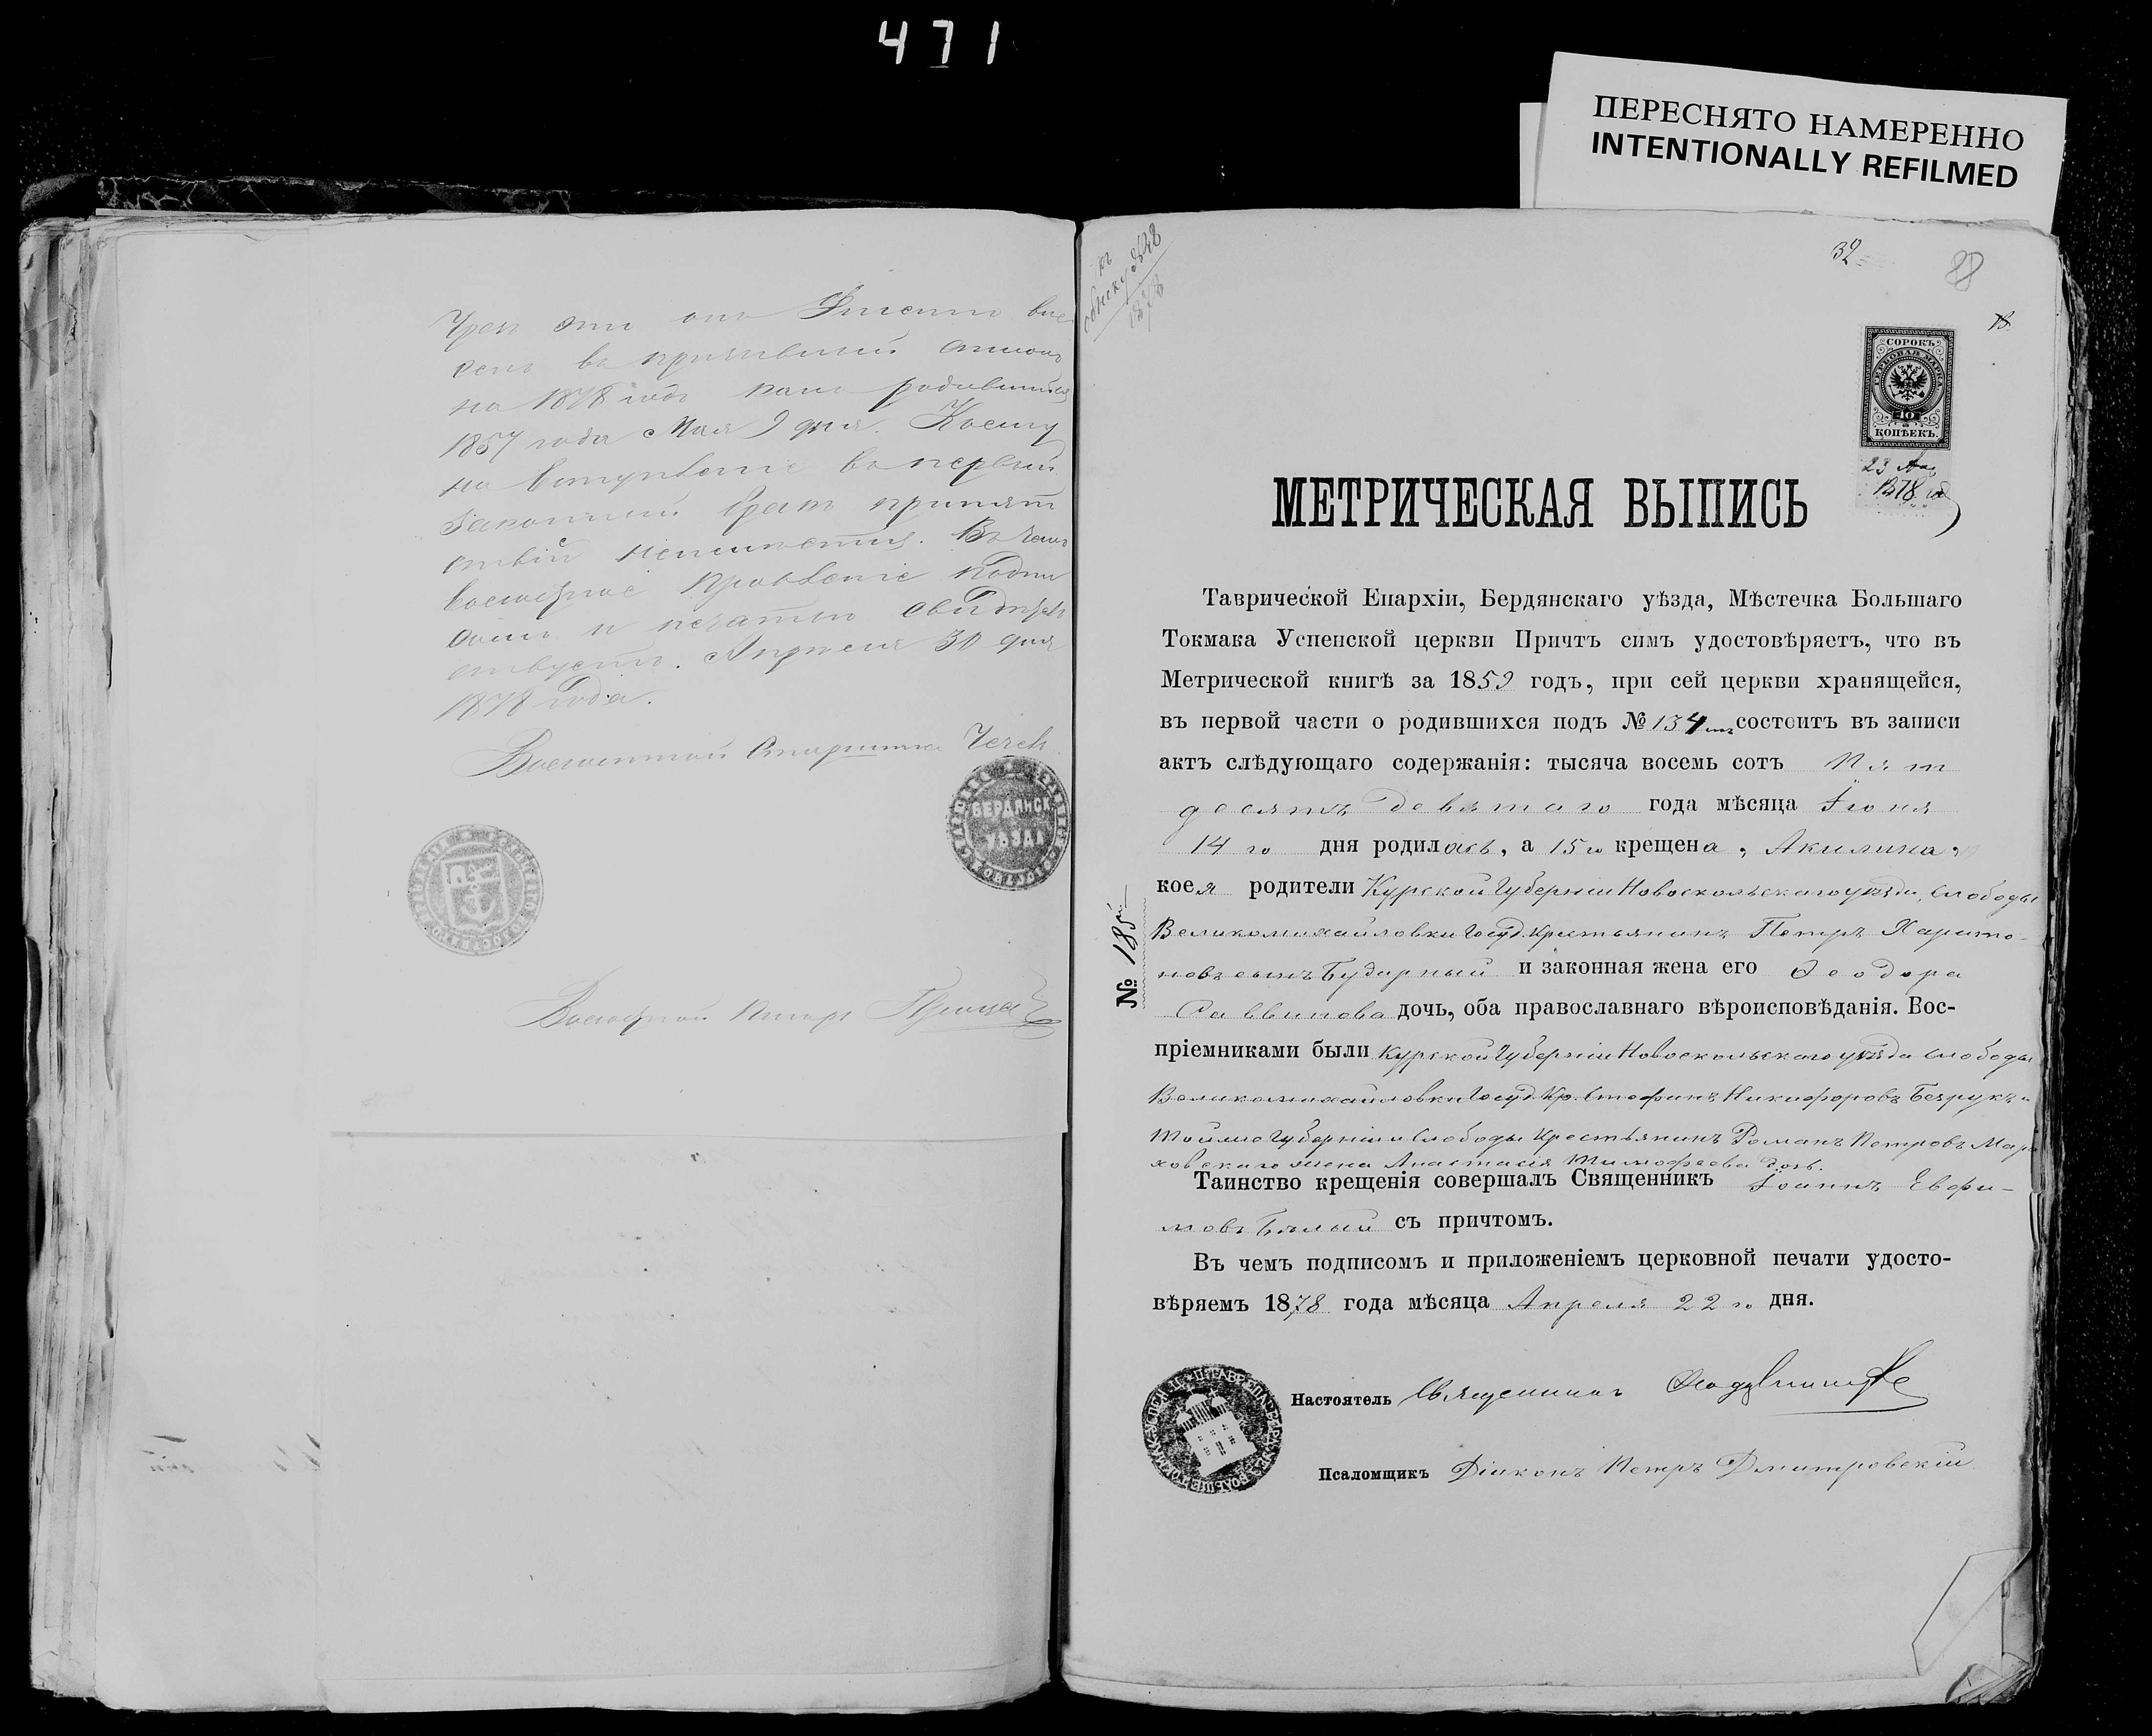 471
ПЕРЕСНЯТО НАМЕРЕННО
INTENTIONALLY REFILMED
на 1878 годъ какъ родившійся
1857 года Мая 9 дня. Коему
на вступленіе въ первый
законный бракъ препят
ствій неимѣется. Въ чемъ
волостное правленіе подпи
сомъ и печатью свидѣтель
ствуетъ. Апрѣля 30 дня
1878 года.
Волостной Старшина
БЕРДЯНСК
УѢЗДА
Волостной Писарь
къ
обыску №28
1878
32
28
18
СОРОКЪ
ГЕРБОВАЯ МАРКА
40
КОПѢЕКЪ.
23 Апр
1878 год
МЕТРИЧЕСКАЯ ВЫПИСЬ
Таврической Епархіи, Бердянскаго уѣзда, Мѣстечка Большаго
Токмака Успенской церкви Причтъ симъ удостовѣряетъ, что въ
Метрической книгѣ за 1859 годъ, при сей церкви хранящейся,
въ первой части о родившихся подъ № 134 мъ состоитъ въ записи
актъ слѣдующаго содержанія: тысяча восемь сотъ Пят
десятъ девятаго года мѣсяца Іюня
14 го дня родилась, а 15 го крещена „Акилина„
коея родители Курской Губерніи Новоскольскаго уѣзда, слободы
Великомихайловки Госуд. Крестьянинъ Петръ Харито-
новъ сынъ Бударный и законная жена его Ѳеодора
Саввинова дочь, оба православнаго вѣроисповѣданія. Вос-
пріемниками были Курской Губерніи Новоскольскаго уѣзда слободы
Великомихайловки Госуд. Кр. Стефанъ Никифоровъ Безрукъ и
тойже Губерніи и слободы Крестьянинъ Романъ Петровъ Мара
ховскаго жена Анастасія Тимофеева дочь.
Таинство крещенія совершалъ Священникъ Іоаннъ Евфи-
мовъ Бѣлый съ причтомъ.
Въ чемъ подписомъ и приложеніемъ церковной печати удосто-
вѣряемъ 1878 года мѣсяца Апрѣля 22 го дня.
№ 185й
Настоятель Священникъ
Псаломщикъ Діаконъ Петръ Дмитровскій